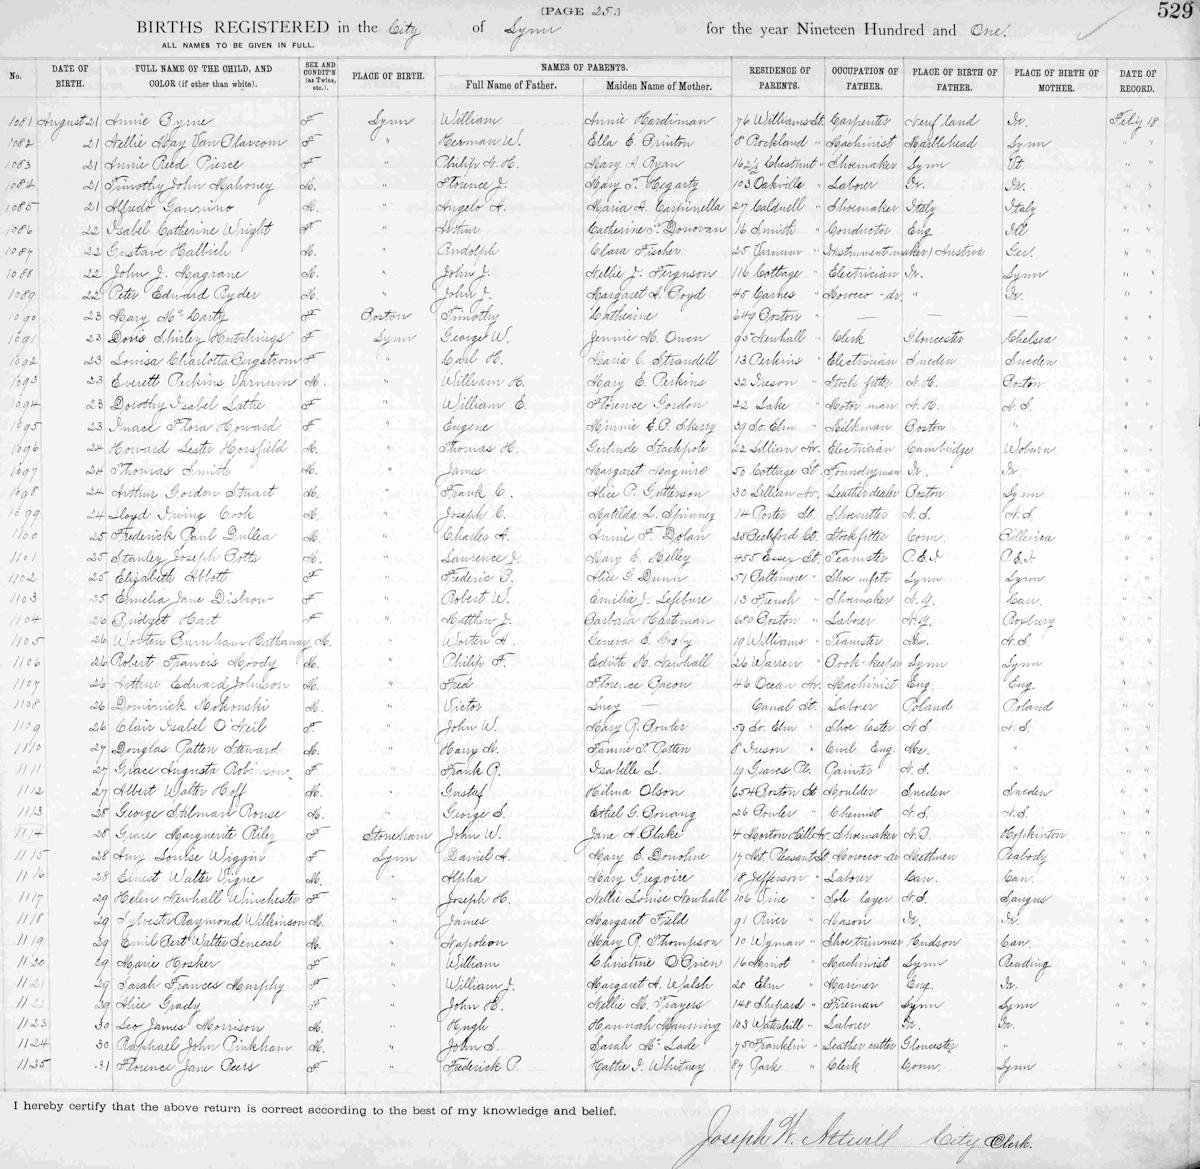 [PAGE 25.]
529
BIRTHS REGISTERED in the City of Lynn for the year Nineteen Hundred and One.
ALL NAMES TO BE GIVEN IN FULL.
No. DATE OF BIRTH. FULL NAME OF THE CHILD, AND COLOR (if other than white). SEX AND CONDIT'N (as Twins, etc.). PLACE OF BIRTH. NAMES OF PARENTS. Full Name of Father. Maiden Name of Mother. RESIDENCE OF PARENTS. OCCUPATION OF FATHER. PLACE OF BIRTH OF FATHER. PLACE OF BIRTH OF MOTHER. DATE OF RECORD.
1081 August 21 Annie Byrne F Lynn William Annie Hardiman 76 Williams St. Carpenter Newf'land Ir. Feb'y 18
1082 21 Nellie May Van Blarcom F " Herman W. Ella E. Brinton 8 Rockland " Machinist Marblehead Lynn " "
1083 21 Annie Reed Pierce F " Philip H. H. Mary A. Ryan 162½ Chestnut " Shoemaker Lynn Vt. " "
1084 21 Timothy John Mahoney M. " Florence J. Mary T. Hegarty 103 Oakville " Laborer Ir. Ir. " "
1085 21 Alfredo M. " Angelo A. Maria A. Carpinella 27 Caldwell " Shoemaker Italy Italy " "
1086 22 Isabel Catherine Wright F " Arthur Catherine T. Donovan 16 Smith " Conductor Eng. Ill " "
1087 22 Gustave Halbich M. " Rudolph Clara Fischer 25 Varnum " Instrument maker Austria Ger. " "
1088 22 John J. Magrane M. " John J. Nellie J. Ferguson 116 Cottage " Electrician Ir. Lynn " "
1089 22 Peter Edward Ryder M. " John J. Margaret A. Boyd 45 Carnes " Morocco-dr. " Ir. " "
1090 23 Mary McCarty F Boston Timothy Catherine 649 Boston " — — — " "
1091 23 Doris Shirley Hutchings F Lynn George W. Jennie M. Owen 95 Newhall " Clerk Gloucester Chelsea " "
1092 23 Louisa Charlotta Bergstrom F " Carl H. Maria C. Strandell 13 Perkins " Electrician Sweden Sweden " "
1093 23 Everett Perkins Varnum M. " William H. Mary E. Perkins 32 Ireson " Stock fitter N.H. Boston " "
1094 23 Dorothy Isabel Lathe F " William E. Florence Gordon 22 Lake " Motor man N.H. N.S. " "
1095 23 Inace Flora Howard F " Eugene Minnie E.B. Skerry 39 So. Elm " Milkman Boston " " "
1096 24 Howard Lester Horsfield M. " Thomas H. Gertrude Stackpole 22 Lillian Av. Electrician Cambridge Woburn " "
1097 24 Thomas Smith M. " James Margaret Maguire 50 Cottage St. Foundryman Ir. Ir. " "
1098 24 Arthur Gordon Stuart M. " Frank C. Alice P. Gutterson 30 Lillian Av. Leather dealer Boston Lynn " "
1099 24 Lloyd Irving Cook M. " Joseph C. Matilda L. Spinney 14 Porter St. Shoecutter N.S. N.S. " "
1100 25 Frederick Paul Dullea M. " Charles A. Annie F. Dolan 28 Beckford Ct. Stockfitter Conn. Billerica " "
1101 25 Stanley Joseph Potts M. " Lawrence J. Mary E. Kelley 455 Essex St. Teamster P.E.I. P.E.I. " "
1102 25 Elizabeth Abbott F " Frederic P. Alice G. Dunn 51 Baltimore " Shoe mfctr Lynn Lynn " "
1103 25 Emelia Jane Disbrow F " Robert W. Emilia J. Lefebvre 13 French " Shoemaker N.Y. Can. " "
1104 26 Bridget Hart F " Matthew J. Barbara Hartman 680 Boston " Laborer N.Y. Roxbury " "
1105 26 Worten Burnham Hathaway M. " Worten A. Geneva E. Crosby 19 Williams " Teamster Me. N.S. " "
1106 26 Robert Francis Moody M. " Philip F. Edith M. Newhall 26 Warren " Book-keeper Lynn Lynn " "
1107 26 Arthur Edward Johnson M. " Fred Florence Bacon 46 Ocean Av. Machinist Eng. Eng. " "
1108 26 Dominick Mokowski M. " Victor Lucy — Canal St. Laborer Poland Poland " "
1109 26 Clair Isabel O'Neil F " John W. Mary R. Bowler 59 So. Elm " Shoe laster N.S. N.S. " "
1110 27 Douglas Patten Steward M. " Harry M. Fannie T. Patten 8 Ireson " Civil Eng. Me. " " "
1111 27 Grace Augusta Robinson F " Frank P. Isabelle L. 19 Graves Pl. Painter N.S. " " "
1112 27 Albert Walter Hoff M. " Gustaf Hilma Olson 654 Boston St Moulder Sweden Sweden " "
1113 28 George Stilman Rouse M. " George S. Ethel G. Bonang 26 Bowler " Chemist N.S. N.S. " "
1114 28 Grace Marguerite Riley F Stoneham John W. Jane A. Blake 4 Morton Hill Av. Shoemaker N.B. Hopkinton " "
1115 28 Amy Louise Wiggin F Lynn Daniel A. Mary E. Donohue 17 Mt. Pleasant St Morocco-dr Methuen Peabody " "
1116 28 Ernest Walter Vigue M. " Alpha Mary Gregoire 18 Jefferson " Laborer Can. Can. " "
1117 29 Helen Newhall Winchester F " Joseph H. Nellie Louise Newhall 106 Vine " Sole layer N.S. Saugus " "
1118 29 Sylvester Raymond Wilkinson M. " James Margaret Field 91 River " Mason Ir. Ir. " "
1119 29 Emil Bert Walter Senecal M. " Napoleon Mary R. Thompson 10 Wyman " Shoe trimmer Hudson Can. " "
1120 29 Marie Hosker F " William Christine O'Brien 16 Minot " Machinist Lynn Reading " "
1121 29 Sarah Frances Murphy F " William J. Margaret A. Walsh 20 Elm " Mariner Eng. Ir. " "
1122 29 Alice Grady F " John H. Nellie M. Frayers 148 Shepard " Fireman Lynn Lynn " "
1123 30 Leo James Morrison M. " Hugh Hannah Manning 103 Waterhill " Laborer Ir. Ir. " "
1124 30 Raphael John Pinkham M. " John S. Sarah McLade 75 Franklin " Leather cutter Gloucester " " "
1125 31 Florence Jane Peers F " Frederick P. Hattie I. Whitney 87 Park " Clerk Conn. Lynn " "
I hereby certify that the above return is correct according to the best of my knowledge and belief.
Joseph W. Attwill City Clerk.